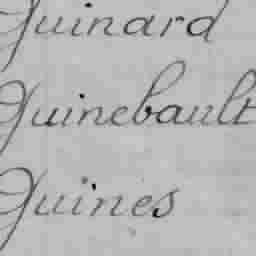 Guinard
Guinebault
Guines